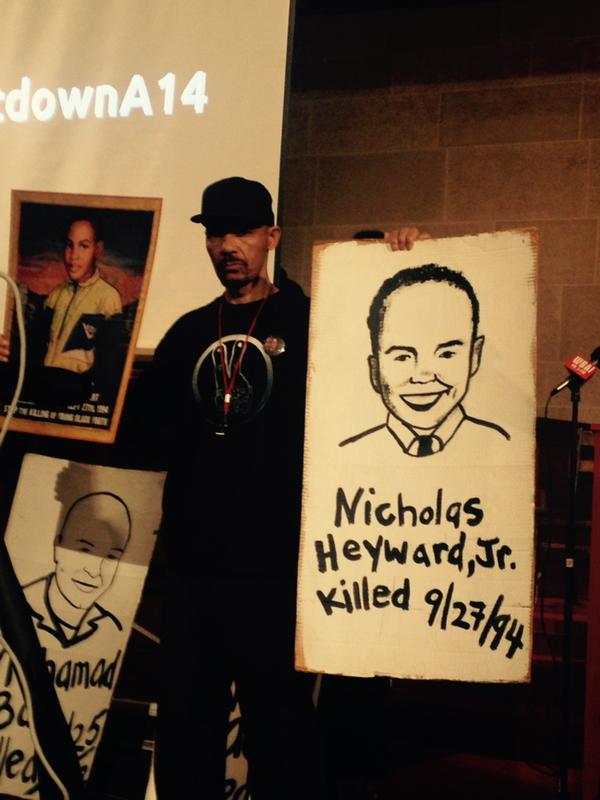 downA14
27TH, 1994
STOP THE KILLING OF YOUNG BLACK YOUTH
Nicholas
Heyward, Jr.
Killed 9/27/94
WBAI
hamad
Ba
25
lle